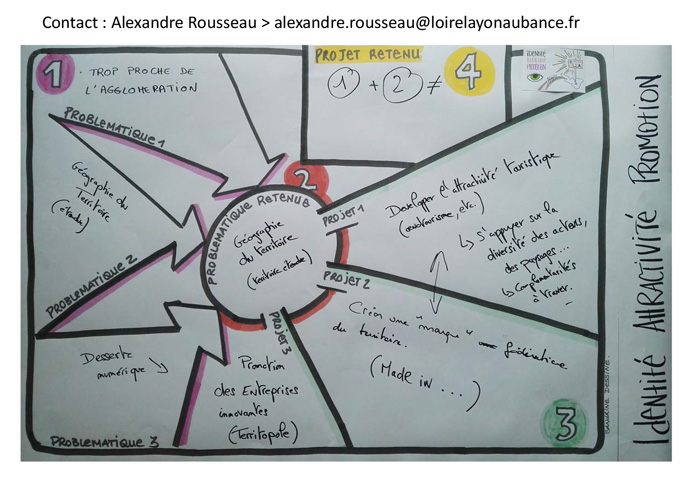 Contact : Alexandre Rousseau > alexandre.rousseau@loirelayonaubance.fr
1
• TROP PROCHE DE
L'AGGLOMERATION
PROJET RETENU
1 + 2 ≠
4
IDENTITÉ
PROBLÉMATIQUE 1
Géographie du
Territoire
(étendu)
2
PROBLÉMATIQUE RETENUE
Géographie
du territoire
(territoire étendu)
PROJET 1
Developer l'attractivité touristique
(oenotourisme, etc.)
↳ S'appuyer sur la
diversité des acteurs,
des paysages...
↳ Complémentarités
à trouver.
PROBLÉMATIQUE 2
PROJET 2
Créer une "marque" fédératrice
du territoire.
(Made in ...)
Desserte
numérique
PROBLÉMATIQUE 3
PROJET 3
Promotion
des Entreprises
innovantes
(Territopole)
3
SANDRINE DESSINE.
IDENTITÉ ATTRACTIVITÉ PROMOTION